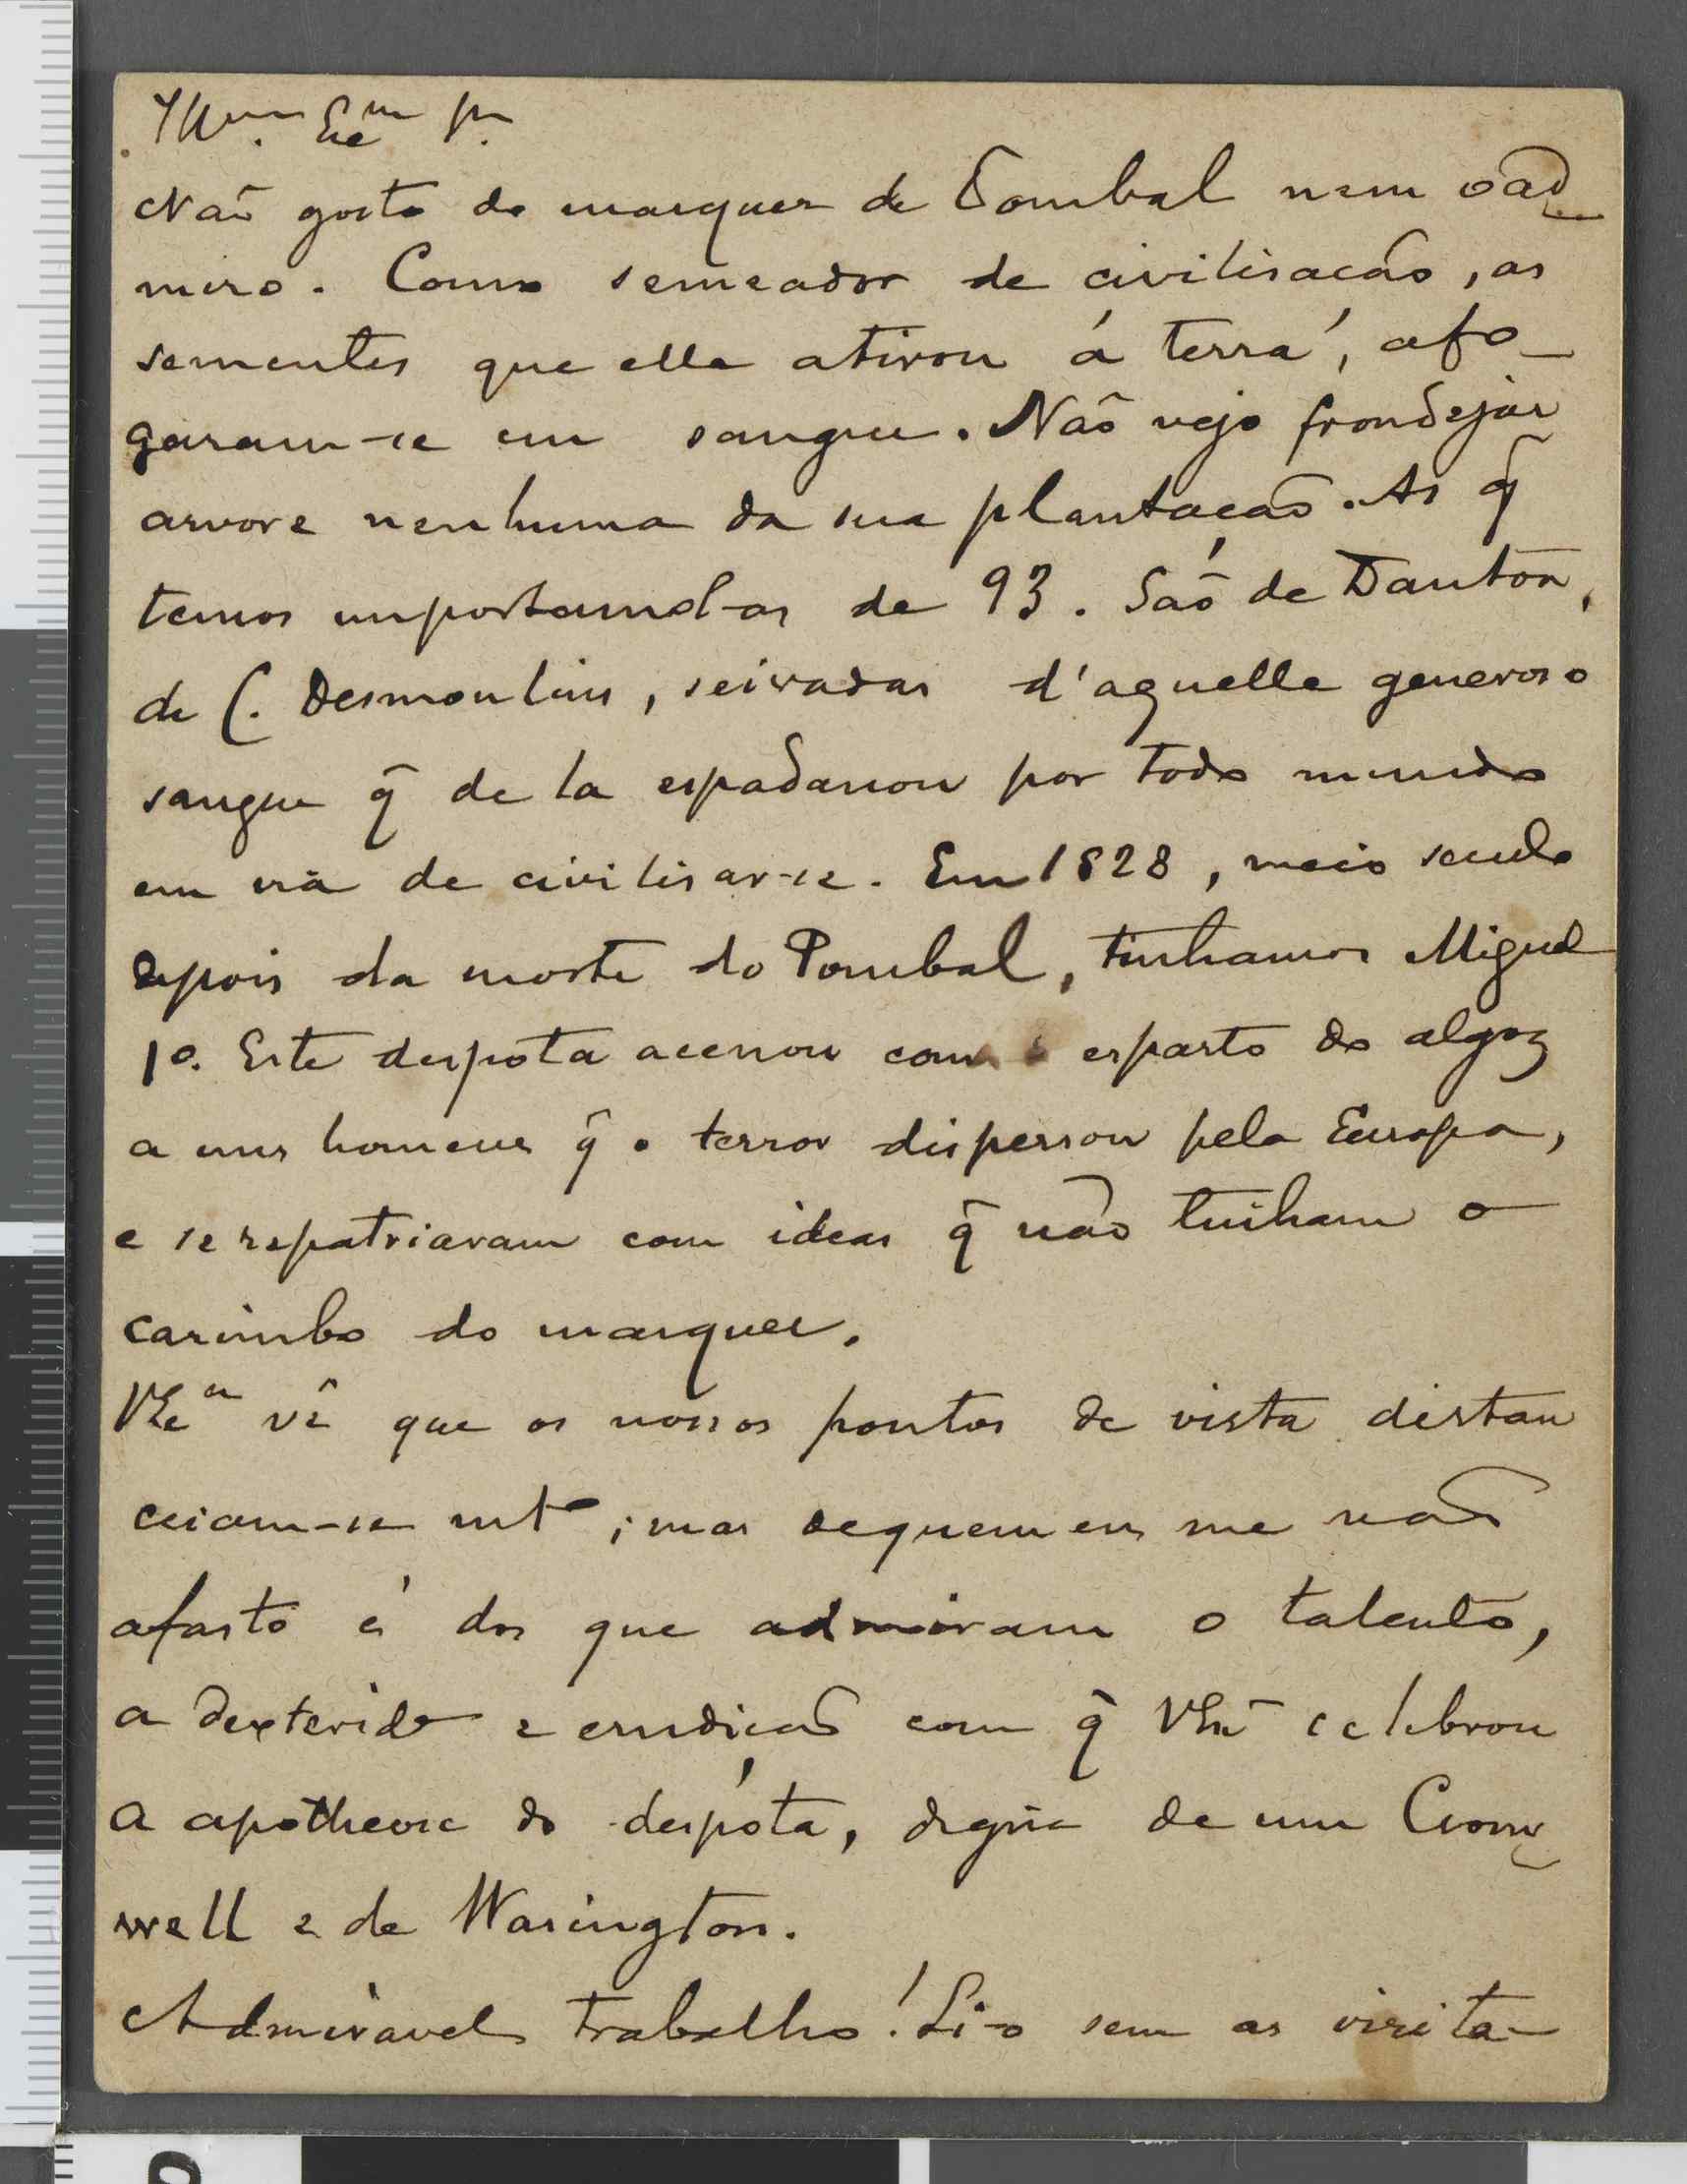 Illmo. Exmo Sr.
Não gosto do marquez de Pombal nem o ad
miro. Como semeador de civilisacão, as
sementes que elle atirou á terra, afo-
garam-se em sangue. Não vejo frondejar
arvore nenhuma da sua plantação. As q̃
temos importamol-as de 93. São de Danton,
de C. Desmoulins, seivadas d'aquelle generoso
sangue q̃ de la espadanou por todo mundo
em via de civilisar-se. Em 1828, meio seculo
depois da morte do Pombal, tinhamos Miguel
1º. Este despota acenou com o esparto do algoz
a uns homens q̃ o terror dispersou pela Europa,
e se repatriavam com ideas q̃ não tinham o
carimbo do marquez.
VExa vê que os nossos pontos de vista distan
ceiam-se mto; mas de quem eu me não
afasto é dos que admiram o talento,
a dexteride e erudição com q̃ VExa celebrou
a apotheose do despota, digna de um Crom
well e de Wasington.
Admiravel trabalho! Li-o sem as irrita-